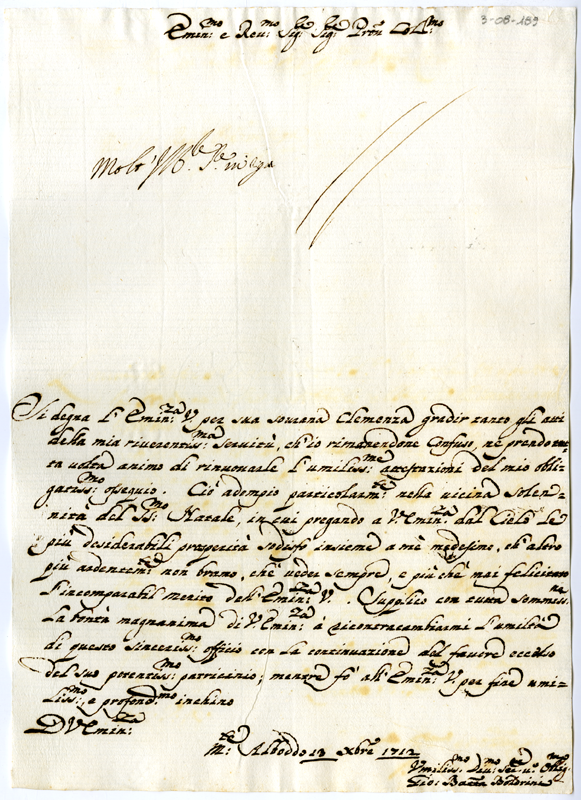 3-08-189
Emin:mo e Reu:mo Sig:r Sig:r Prõn Col:mo
Si degna l'Emin:za V. per sua sourana Clemenza gradir tanto gli atti
della mia riuerentiss:ma Seruitù, ch'io rimanendone Confuso, ne prendo tut=
ta uolta animo di rinuouarle l'umiliss:me attestazioni del mio obli=
gatiss:mo ossequio. Ciò adempio particolarm:te nella uicina Solen=
nità del Ss:mo Natale, in cui pregando a V. Emin:za dal Cielo le
più desiderabili prosperità sodisfo insieme a mè medesimo, ch'altro
più ardentem:te non bramo, che ueder sempre, e più che mai felicitato
l'incomparabil merito dell'Emin:za V. Supplico con tutta sommiss:ne
la bontà magnanima di V. Emin:za à ricontracambiarmi l'umiltà
di questo sinceriss:mo officio con la continuazione del fauore eccelso
del suo potentiss:mo patricinio; mentre fò all'Emin:za V. per fine umi=
liss:mo, e profond:mo inchino
D V Emin:za
13 Xbre 1712
Vmiliss:mo Deu:mo Ser:re Oblig:mo
Gio: Batta